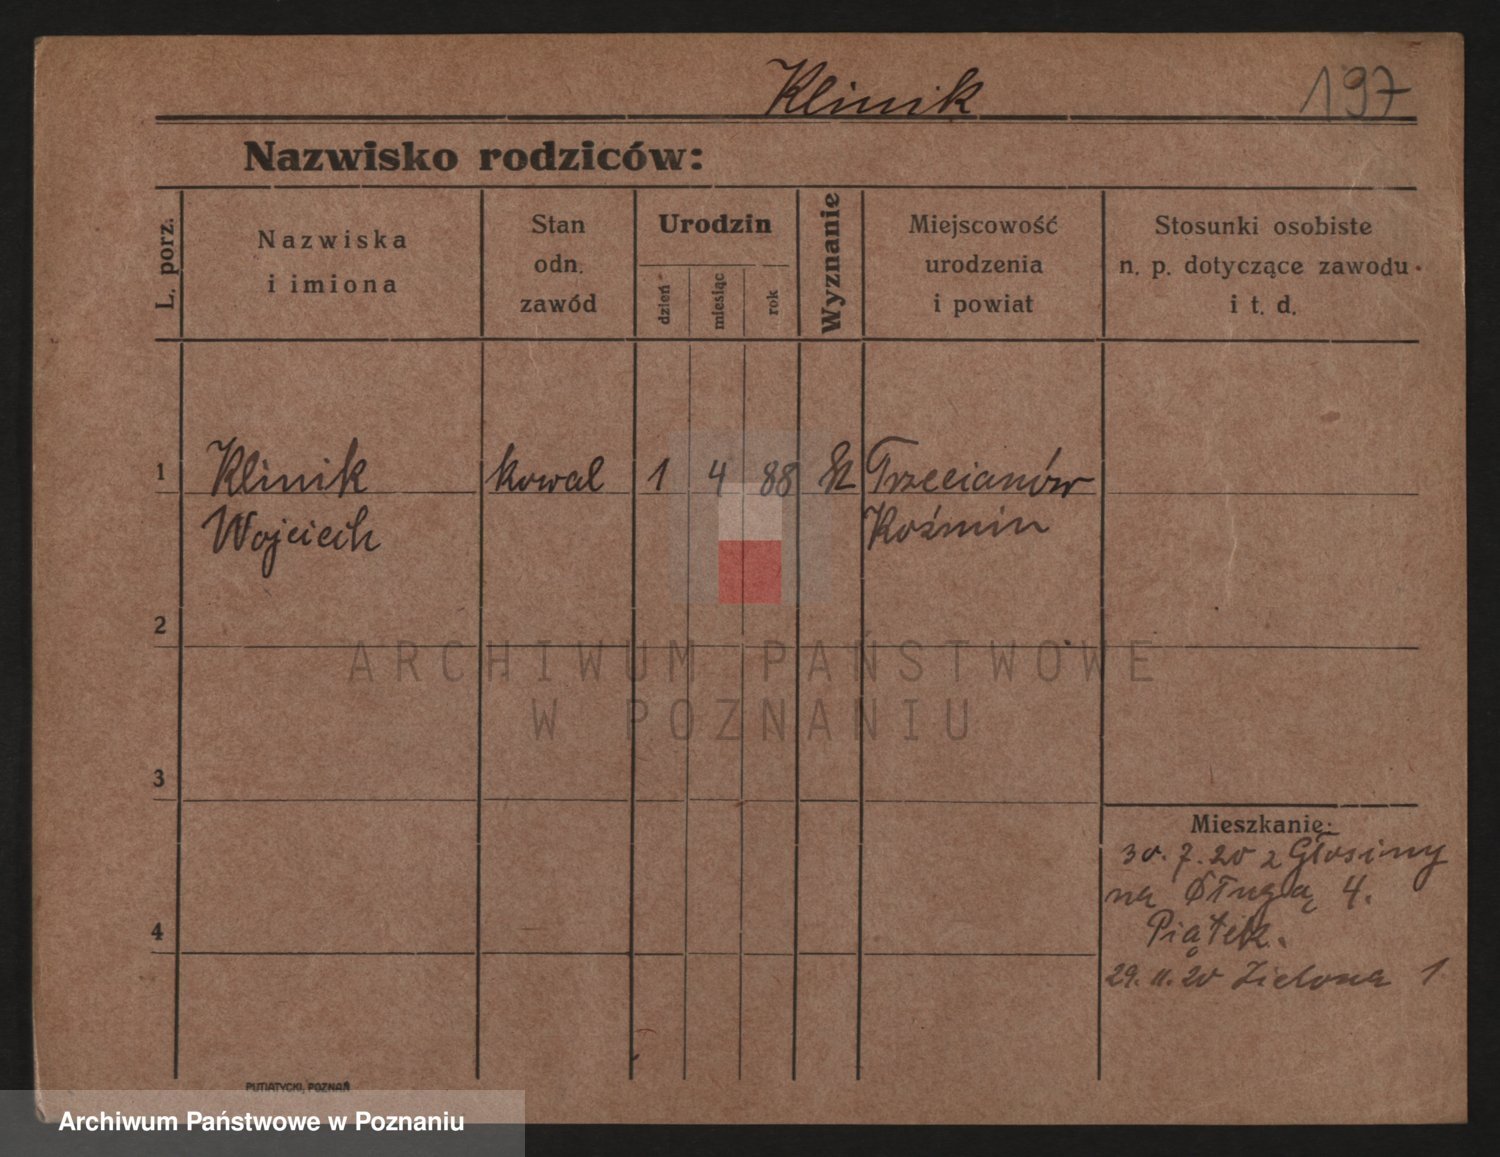 Klinik 197
Nazwisko rodziców:
L. porz.
Nazwiska
i imiona
Stan
odn.
zawód
Urodzin
dzień
miesiąc
rok
Wyznanie
Miejscowość
urodzenia
i powiat
Stosunki osobiste
n. p. dotyczące zawodu
i t. d.
1 Klinik kowal 1 4 88 Trzecianów
Wojciech Koźmin
2
3
4
Mieszkanie:
30. 7. 20 z Głosiny
na Długą 4.
Piątek.
29. 11. 20 Zielona 1
ARCHIWUM PAŃSTWOWE
W POZNANIU
PUTIATYCKI, POZNAŃ
Archiwum Państwowe w Poznaniu